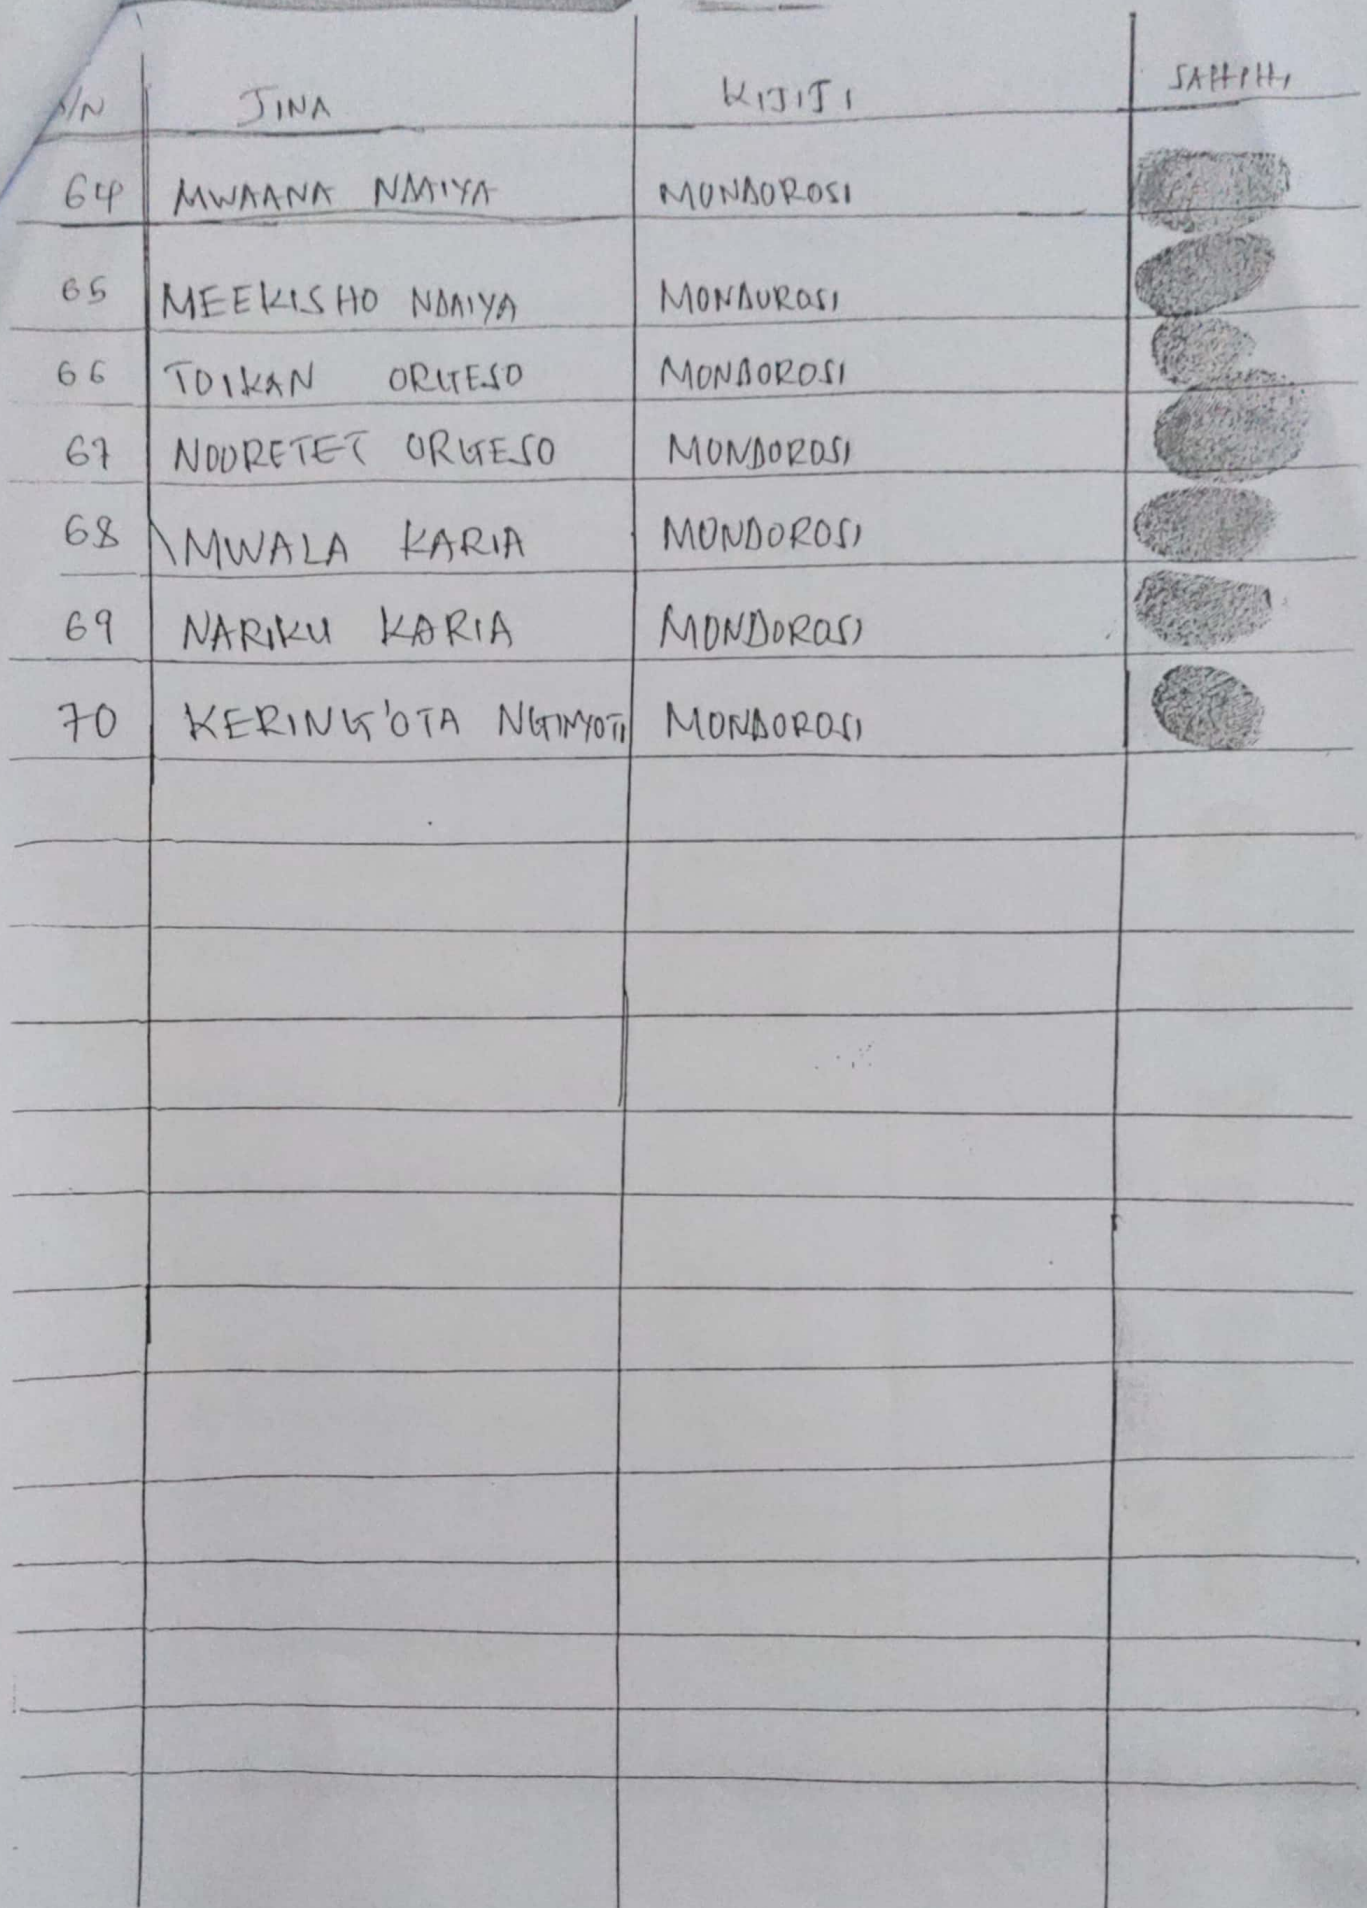 S/N JINA KIJIJI SAHIHI
64 MWAANA NDAIYA MONDOROSI
65 MEEKISHO NDAIYA MONDOROSI
66 TOIKAN ORGESO MONDOROSI
67 NOORETET ORGESO MONDOROSI
68 MWALA KARIA MONDOROSI
69 NARIKU KARIA MONDOROSI
70 KERING'OTA NGINYOTI MONDOROSI